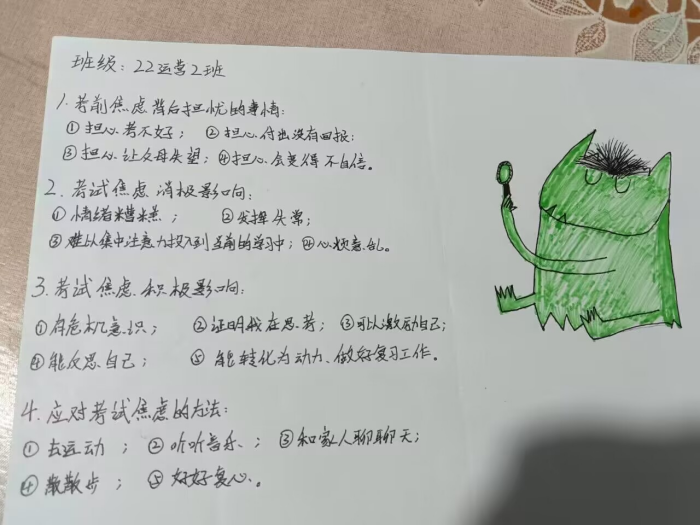 班级：22运营2班
1. 考前焦虑背后担忧的事情：
①担心考不好； ②担心付出没有回报；
③担心让父母失望；④担心会变得不自信。
2. 考试焦虑消极影响：
①情绪糟糕； ②发挥失常；
③难以集中注意力投入到当前的学习中；④心烦意乱。
3. 考试焦虑积极影响：
①有危机意识； ②证明我在思考； ③可以激励自己；
④能反思自己； ⑤能转化为动力、做好复习工作。
4. 应对考试焦虑的方法：
①去运动； ②听听音乐； ③和家人聊聊天；
④散散步； ⑤好好复心。